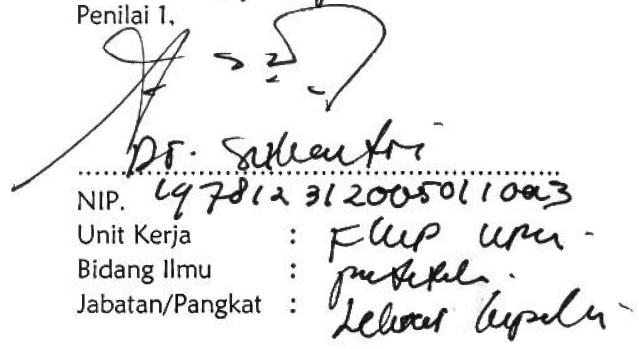 Penilai 1,
Dr. Suhentri
NIP. 197812312005011003
Unit Kerja :
Bidang Ilmu :
Jabatan/Pangkat : Lektor Kepala